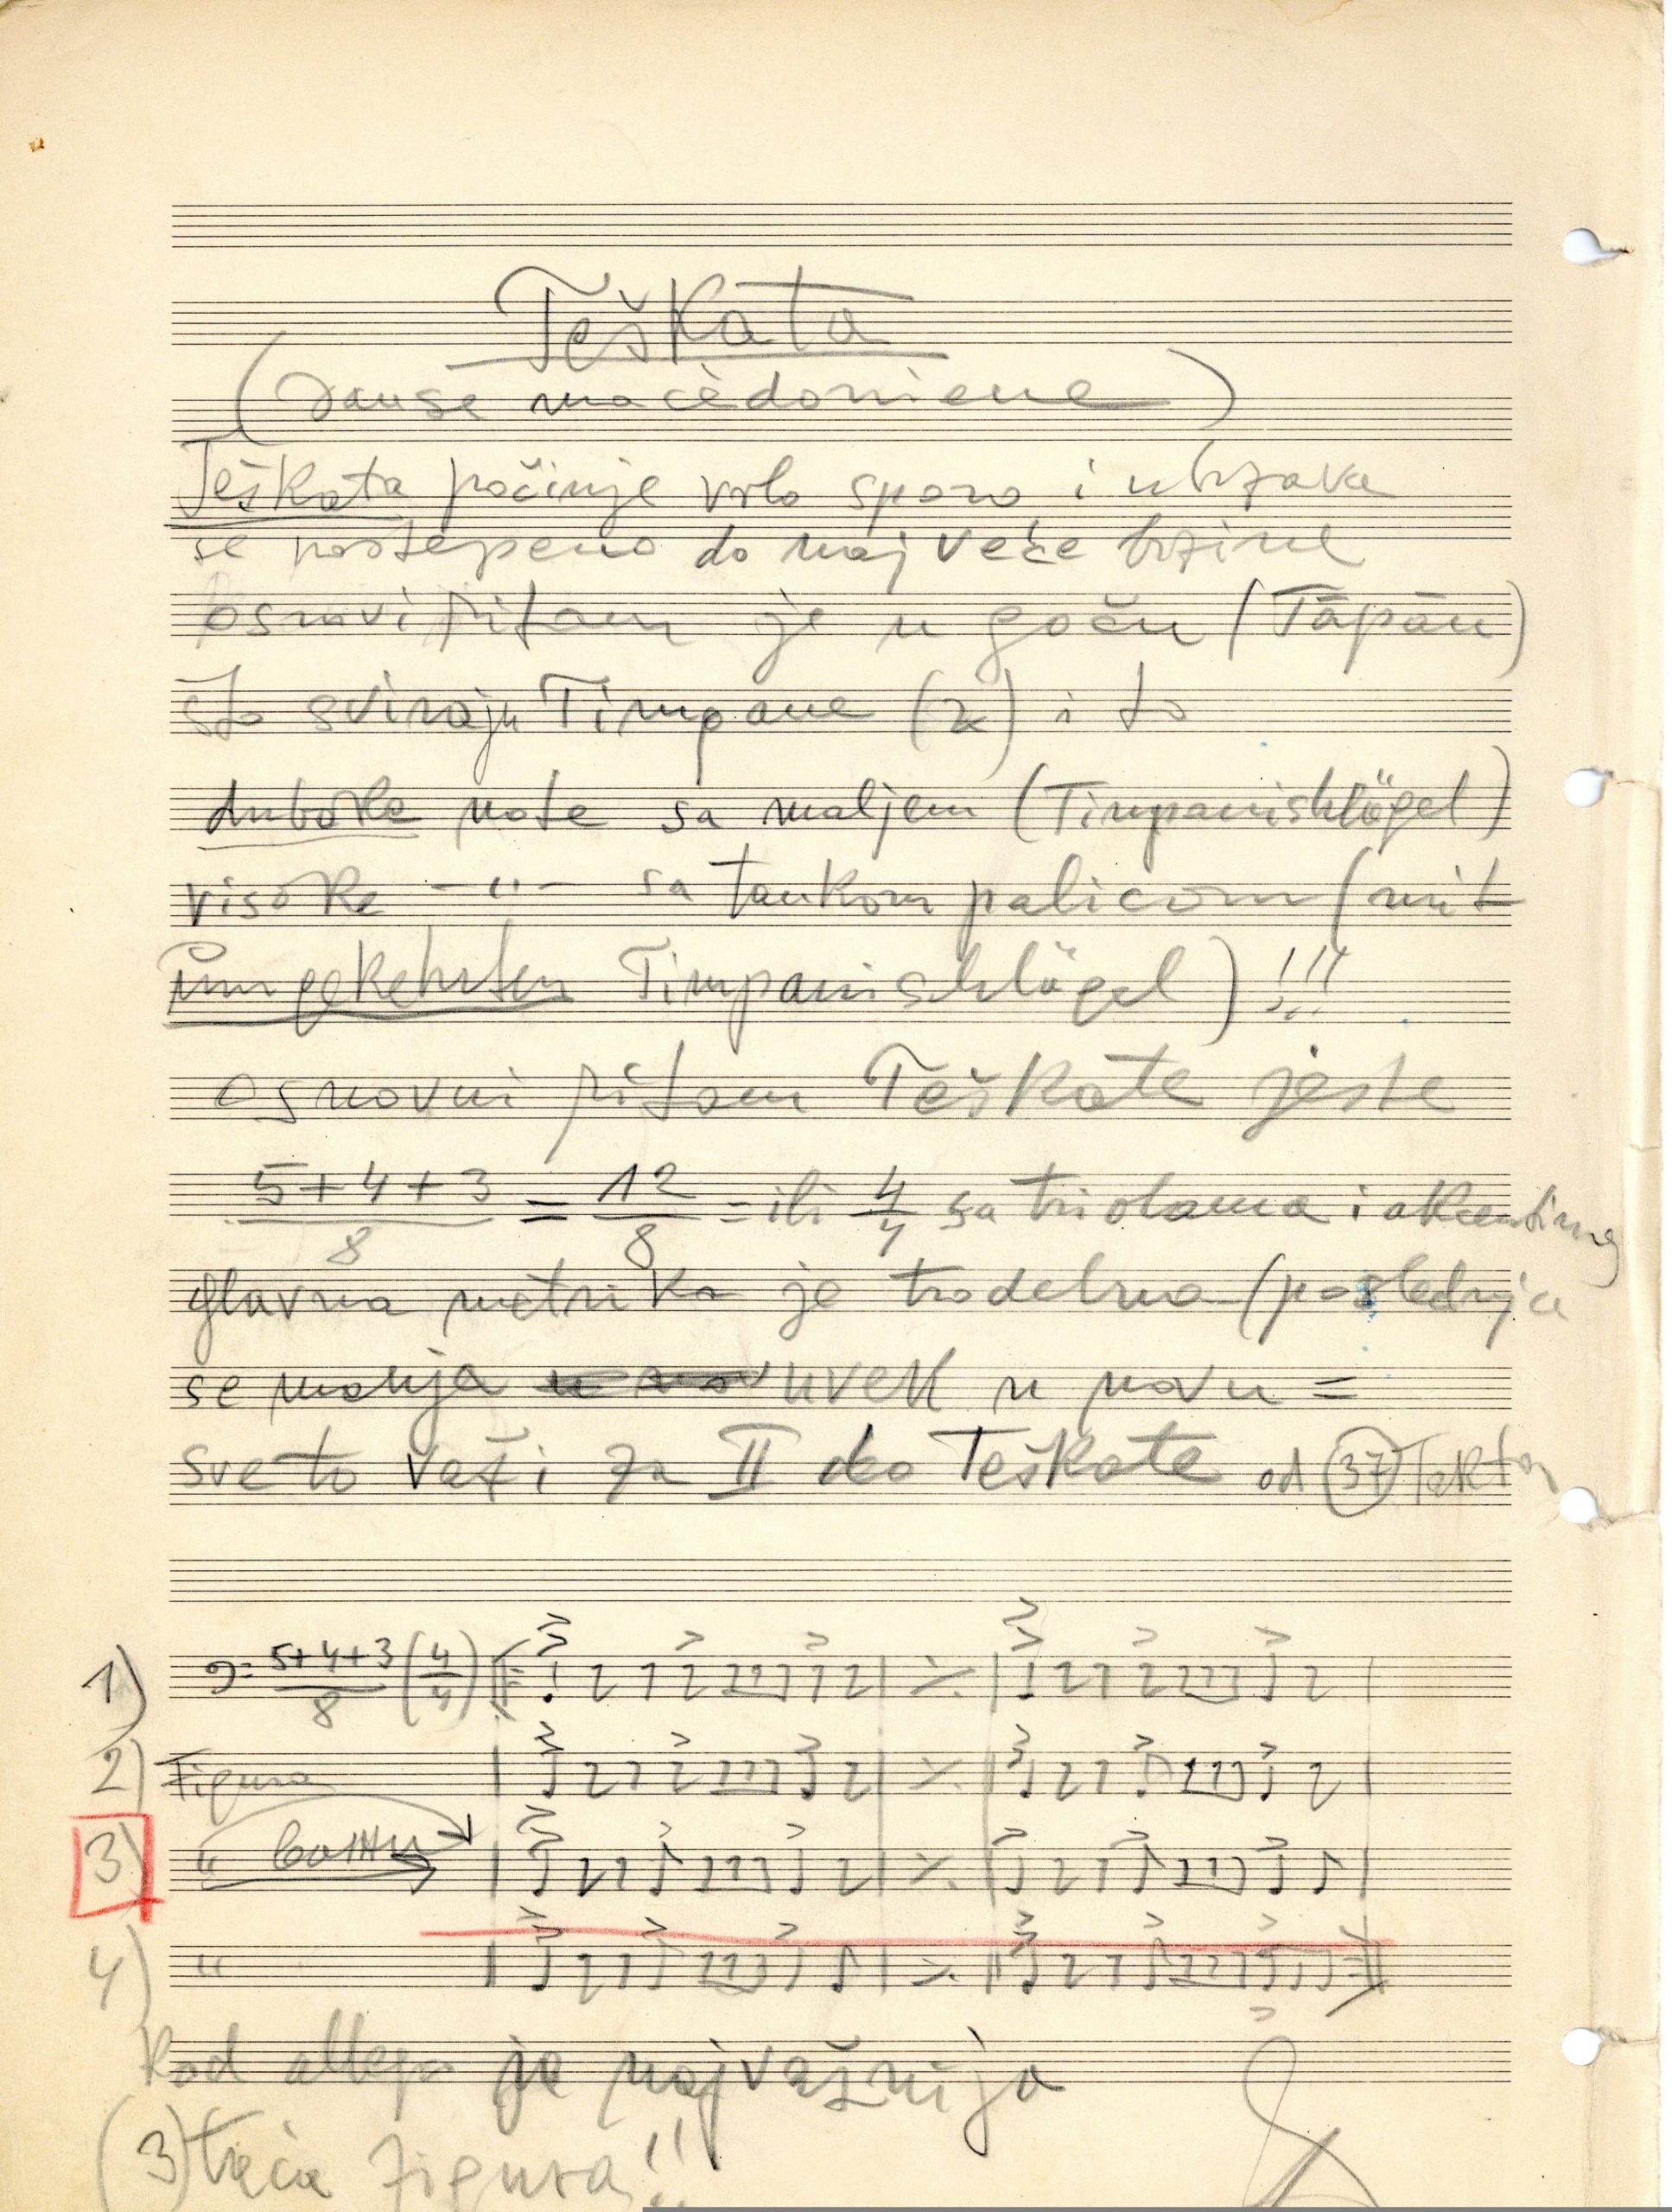 Teškata
(Danse macèdoniene)
Teškata počinje vrlo sporo i ubrzava
se postepeno do najveće brzine
osnovi ritam je u goču (Tāpān)
što sviraju Timpane (2) i to
duboke note sa maljem (Timpanishlägel)
visoke —"— sa tankom palicom (mit
umgekehrten Timpanishlägel)!!!
osnovni ritam Teškate jeste
5+4+3/8 = 12/8 = ili 4/4 sa triolama i akcentima
glavna metrika je trodelna (poslednja
se manja uvek u novu =
sve to važi za II deo Teškate od (37) Takta
1) 5+4+3/8 (4/4)
2) Figura
3) " важи
4) "
Kod allegra je najvažnija
(3) treća figura!!